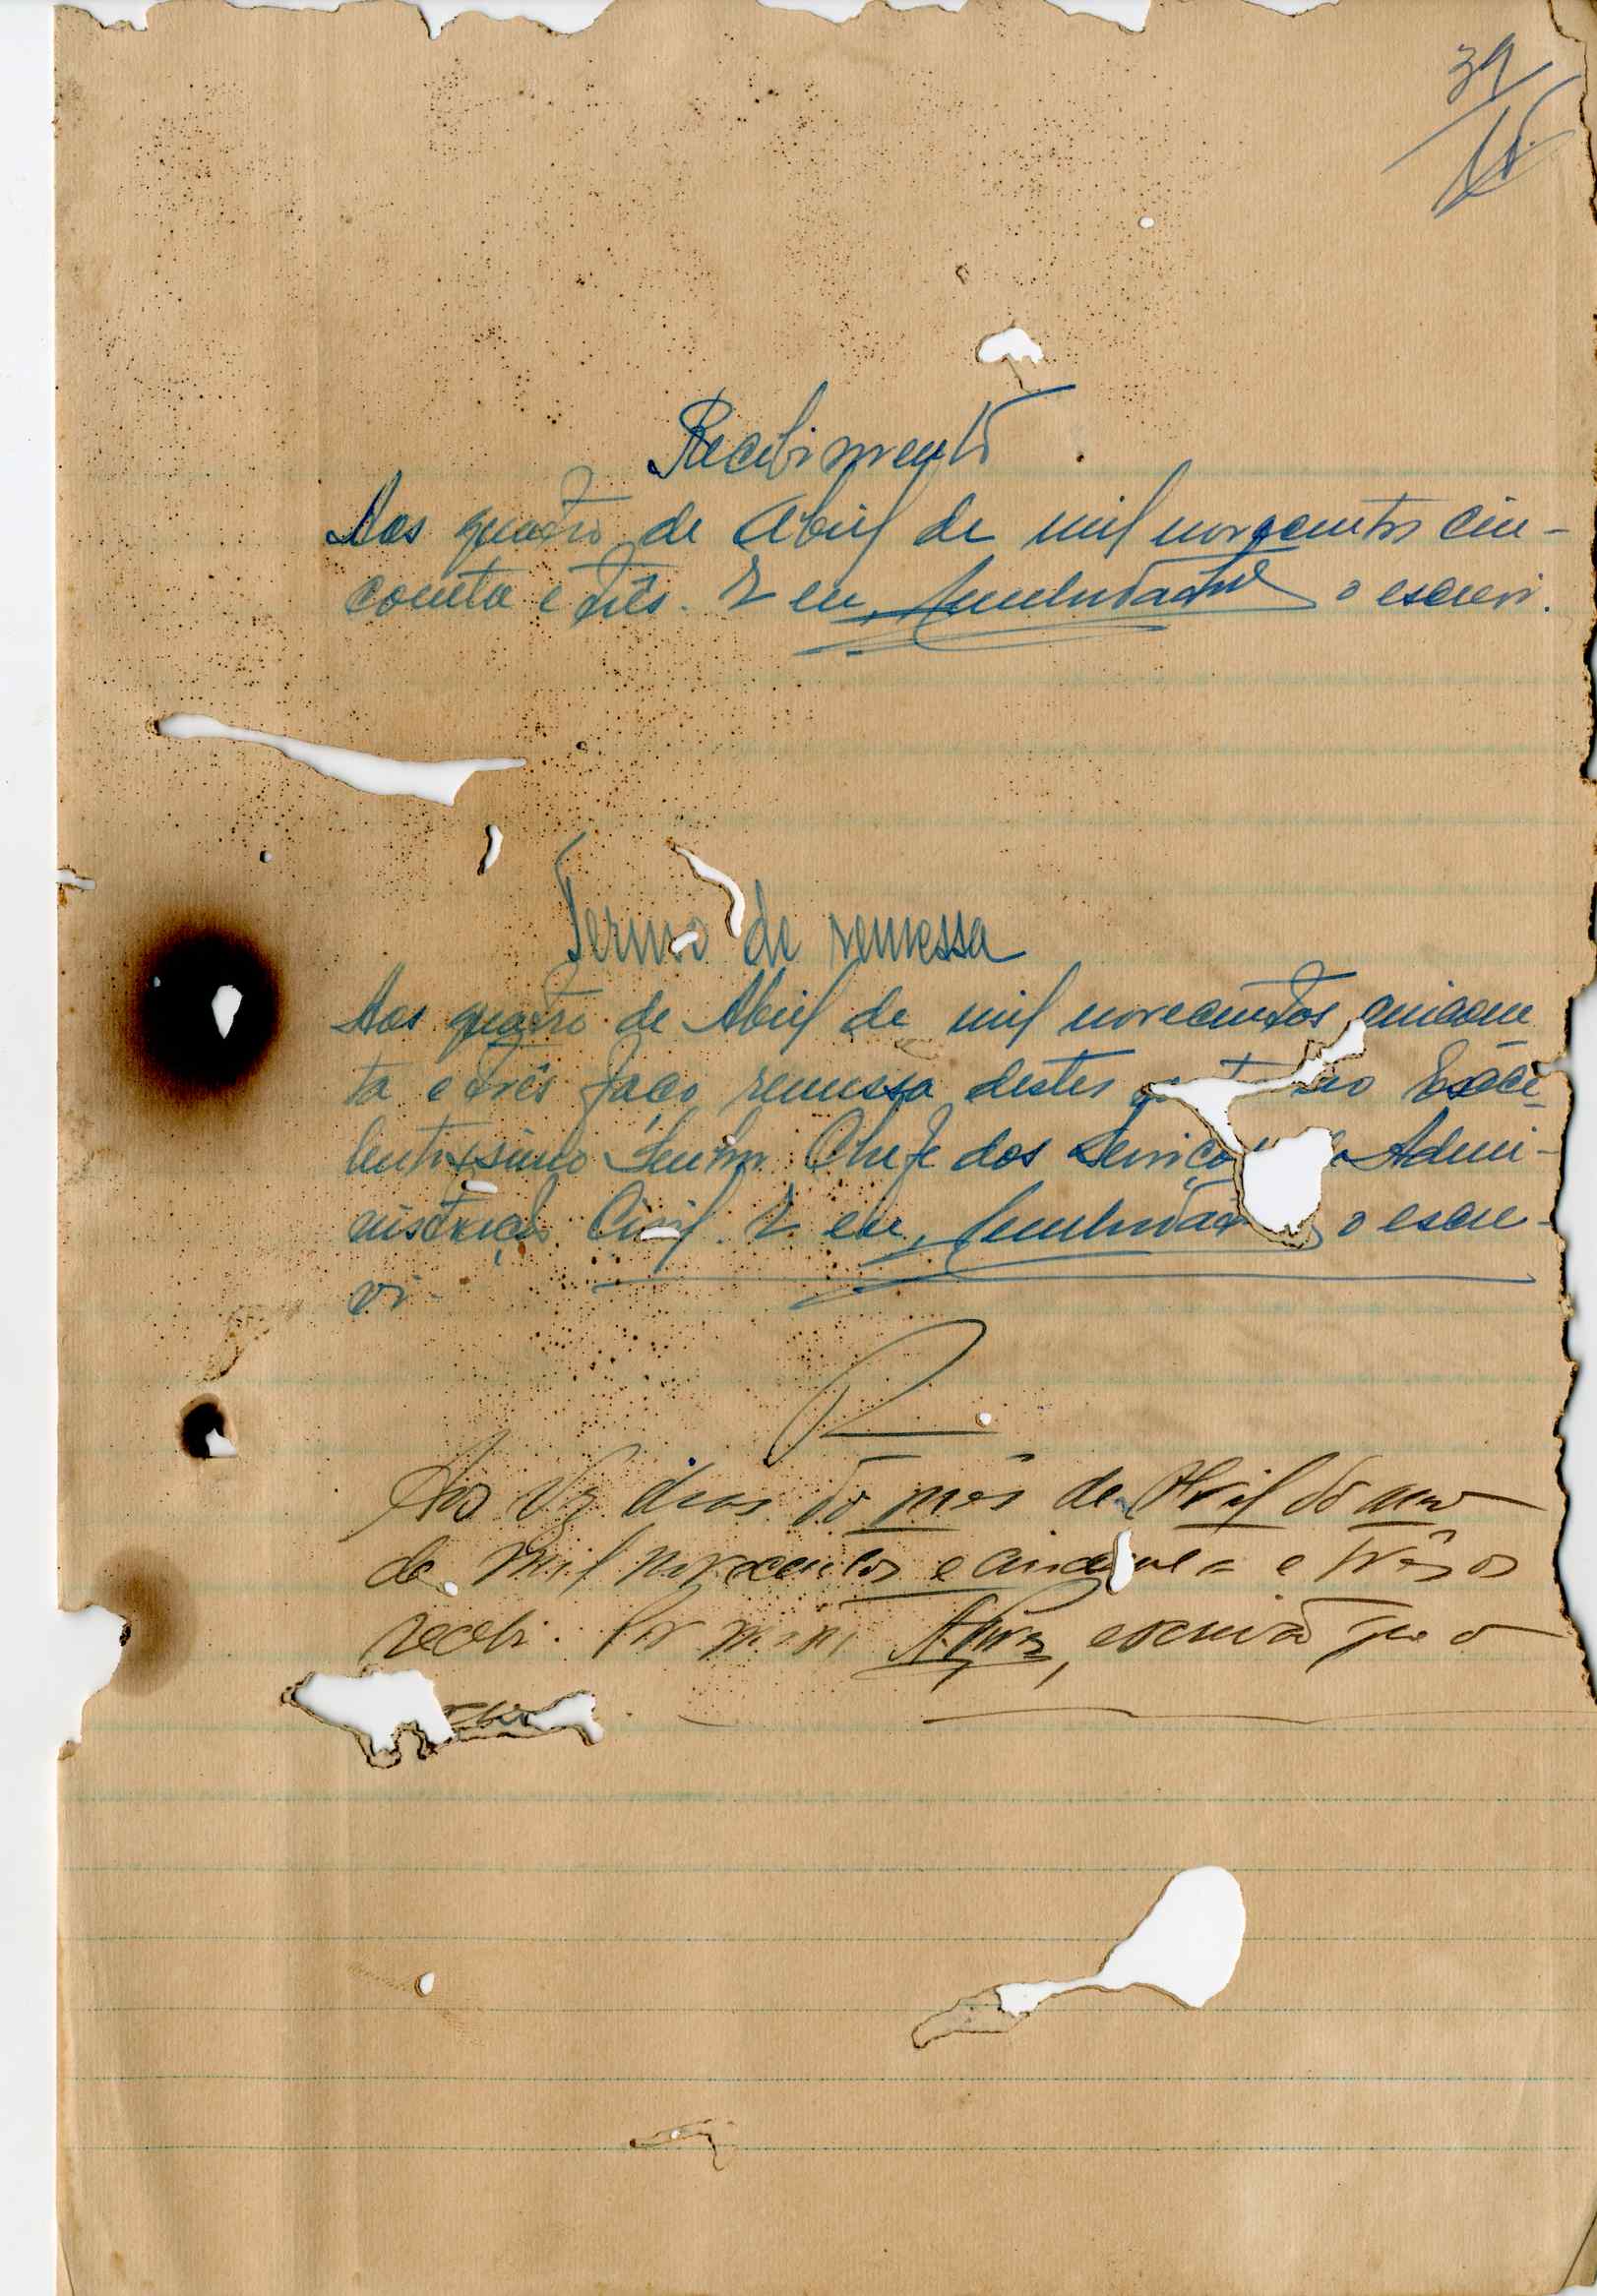 39
Recebimento
Aos quatro de Abril de mil novecentos cin-
coenta e três. E eu, o escrevi.
Termo de remessa
Aos quatro de Abril de mil novecentos cincoen
ta e três faço remessa destes ao Exce-
lentissimo Senhor Chefe dos Serviço Admi-
nistração Civil. E eu, o escre-
vi-
R
Aos dias do mês de Abril do ano
de mil novecentos e cincoenta e três os
recebi. Por mim , escrivão que o